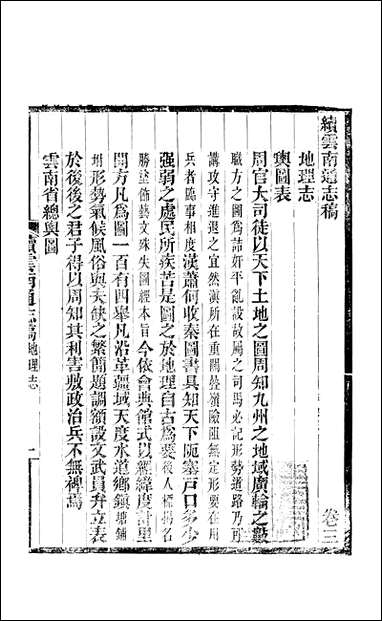 續雲南通志稿
卷三
地理志
輿圖表
周官大司徒以天下土地之圖周知九州之地域廣輪之數
職方之圖爲詰奸平亂設故屬之司馬必記形勢道路乃可
講攻守進退之宜然滇所在重關疊嶺險阻無定形要在用
兵者臨事相度漢蕭何收秦圖書具知天下阨塞戸口多少
强弱之處民所疾苦是圖之於地理自古爲要後人標揚名
勝塗飾藝文殊失圖經本旨今依會典館式以經緯度計里
開方凡爲圖一百有四舉凡沿革疆域天度水道鄉鎮塘鋪
形勢氣候風俗與夫缺之繁簡題調額設文武員弁立表
於後後之君子得以周知其利害敷政治兵不無裨焉
雲南省總輿圖
續雲南通志稿 地理志
一